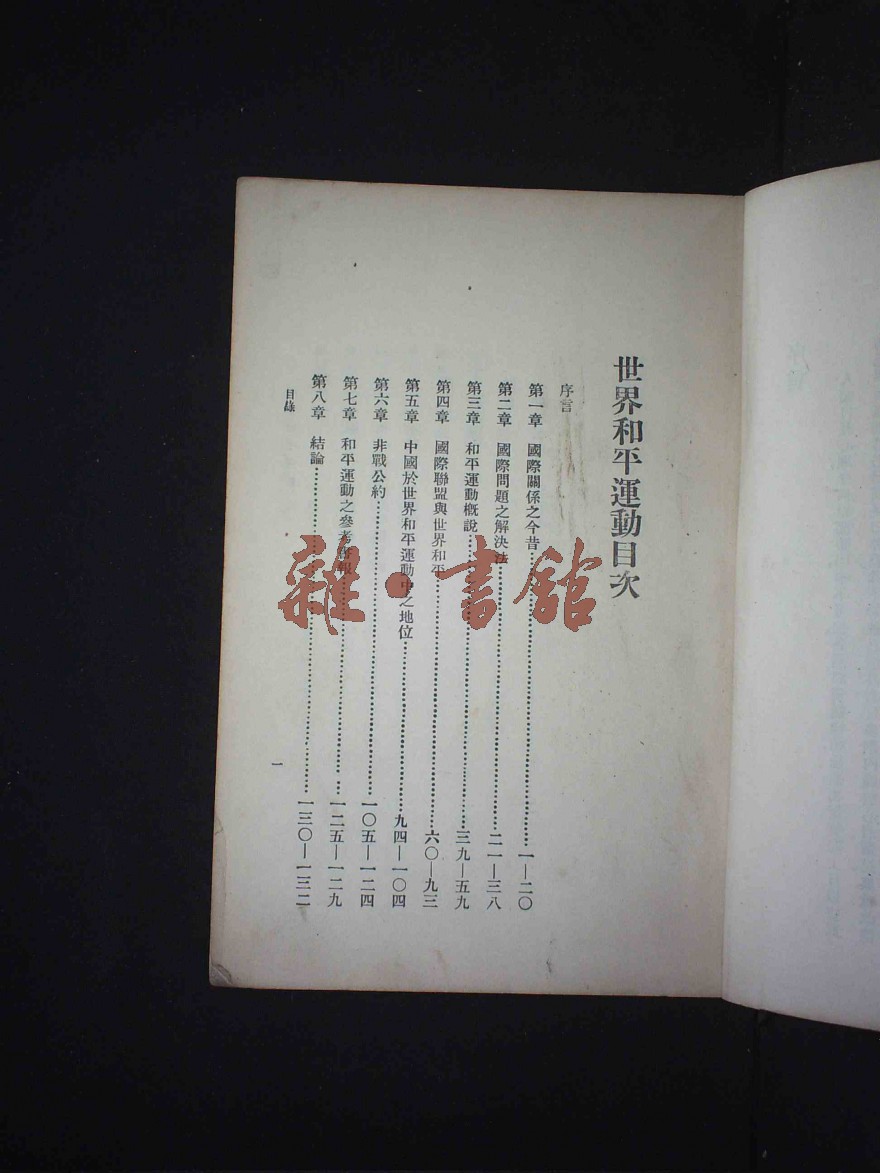 世界和平運動目次
序言
第一章　國際關係之今昔…………一—二〇
第二章　國際問題之解決法…………二一—三八
第三章　和平運動概說…………三九—五九
第四章　國際聯盟與世界和平…………六〇—九三
第五章　中國於世界和平運動中之地位…………九四—一〇四
第六章　非戰公約…………一〇五—一二四
第七章　和平運動之參考書報…………一二五—一二九
第八章　結論…………一三〇—一三二
目錄
一
雜·書館